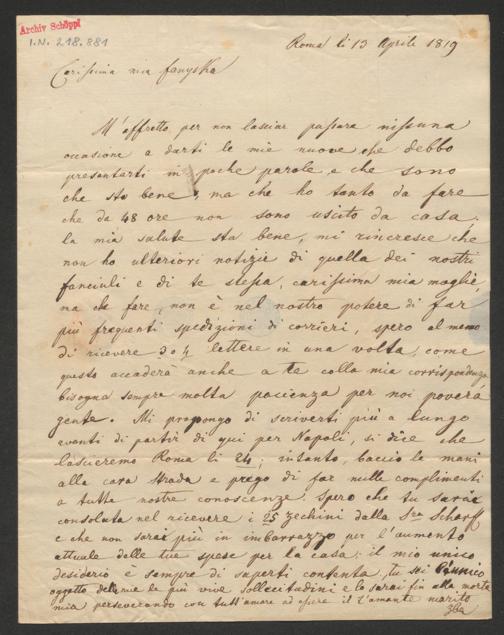 Archiv Schöppl
I.N. 218.881
Roma li 13 Aprile 1819
Carissima mia fanyska
M'affretto, per non lasciar passare nissuna
occasione a darti le mie nuove che debbo
presentarti in poche parole, e che sono
che sto bene, ma che ho tanto da fare
che da 48 ore non sono uscito da casa.
la mia salute sta bene, mi rincresce che
non ho ulteriori notizie di quella dei nostri
fanciuli e di te stessa, carissima mia moglie,
ma che fare, non è nel nostro potere di far
più frequenti spedizioni di corrieri, spero al meno
di ricevere 3 o 4 lettere in una volta, come
questo accaderà anche a te colla mia corrispondenza
bisogna sempre molta pacienza per noi povera
gente. Mi propongo di scriverti più a lungo
avanti di partir di qui per Napoli, si dice che
lascieremo Roma li 24; intanto, baccio le mani
alla cara Strada e prego di far mille complimenti
a tutte nostre conoscenze. Spero che tu sarai
consolata nel ricevere i 25 zechini dalla Sra Scharff
e che non sarai più in imbarrazzo per l'aumento
attuale delle tue spese per la casa; il mio unico
desiderio è sempre di saperti contenta, tu sei l'unico
oggetto delle mie più vive sollecitudini e lo sarai fin alla morte
mia perseverando con tutt'amore ad essere il t'amante marito